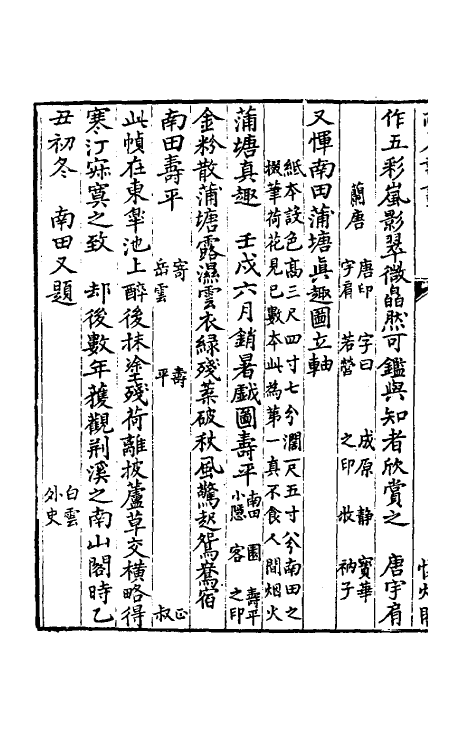 作五彩嵐影翠微晶然可鑑與知者欣賞之　唐宇肩
蘭唐　唐印宇肩　字曰若營　成原之印　靜牧　寶華衲子
又惲南田蒲塘真趣圖立軸
紙本設色高三尺四寸七分濶一尺五寸八分南田之
掇筆荷花見已數本此為第一真不食人間烟火
蒲塘真趣　壬戌六月銷暑戲圖壽平　南田小隱　園客　壽平之印
金粉散蒲塘露濕雲衣綠殘葉破秋風驚起鴛鴦宿
南田壽平　寄岳雲　壽平　正叔
此幀在東臯池上醉後抹塗殘荷離披蘆草交橫略得
寒汀寂寞之致　却後數年獲觀荆溪之南山閣時乙
丑初冬　南田又題　白雲外史